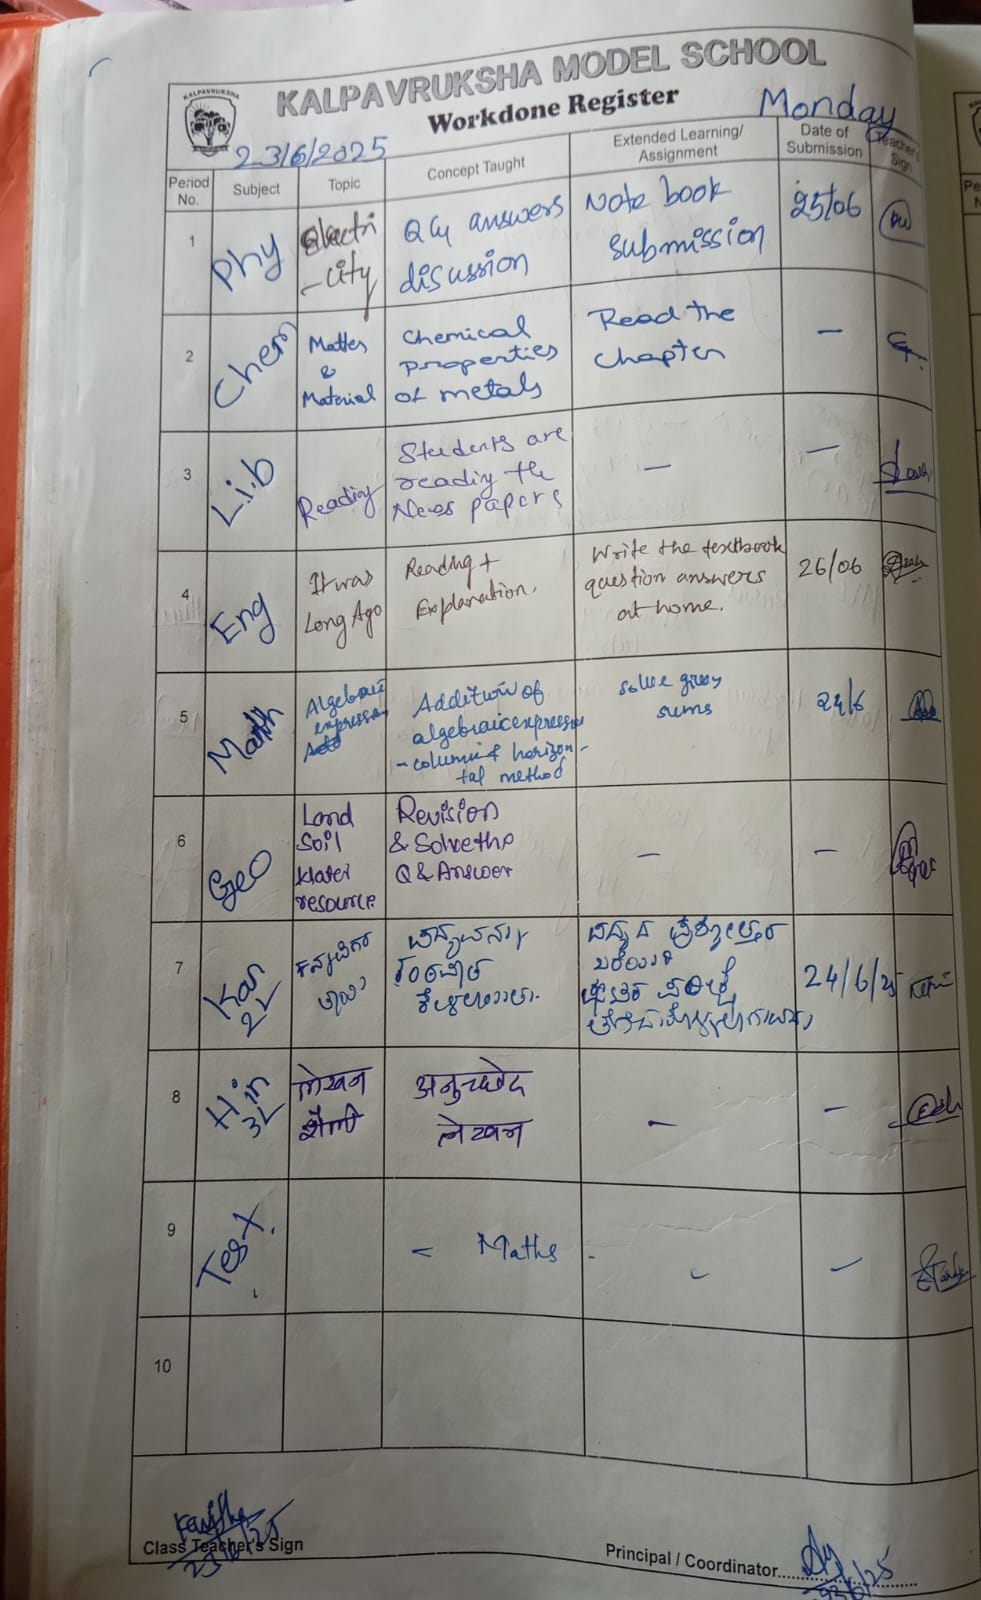 KALPAVRUKSHA
KALPAVRUKSHA MODEL SCHOOL
Workdone Register
Monday
23/6/2025
Period No.
Subject
Topic
Concept Taught
Extended Learning/ Assignment
Date of Submission
Teacher's Sign
1
Phy
Electri
-city
Q & answers
discussion
Note book
submission
25/06
2
Chem
Matter
&
Material
Chemical
properties
of metals
Read the
chapter
-
3
L.i.b
Reading
Students are
reading the
News papers
-
-
4
Eng
It was
Long Ago
Reading +
Explanation.
Write the textbook
question answers
at home.
26/06
5
Math
Algebraic
expression
Add
Addition of
algebraic expression
- column & horizon -
tal method
solve given
sums
24/6
6
Geo
Land
Soil
Water
resource
Revision
& Solve the
Q & Answer
-
-
7
Kan
2L
24/6/25
8
Hin
3L
लेखन
शैली
अनुच्छेद
लेखन
-
-
9
Test.
- Maths -
-
-
10
Class Teacher's Sign
23/6/25
Principal / Coordinator
23/6/25